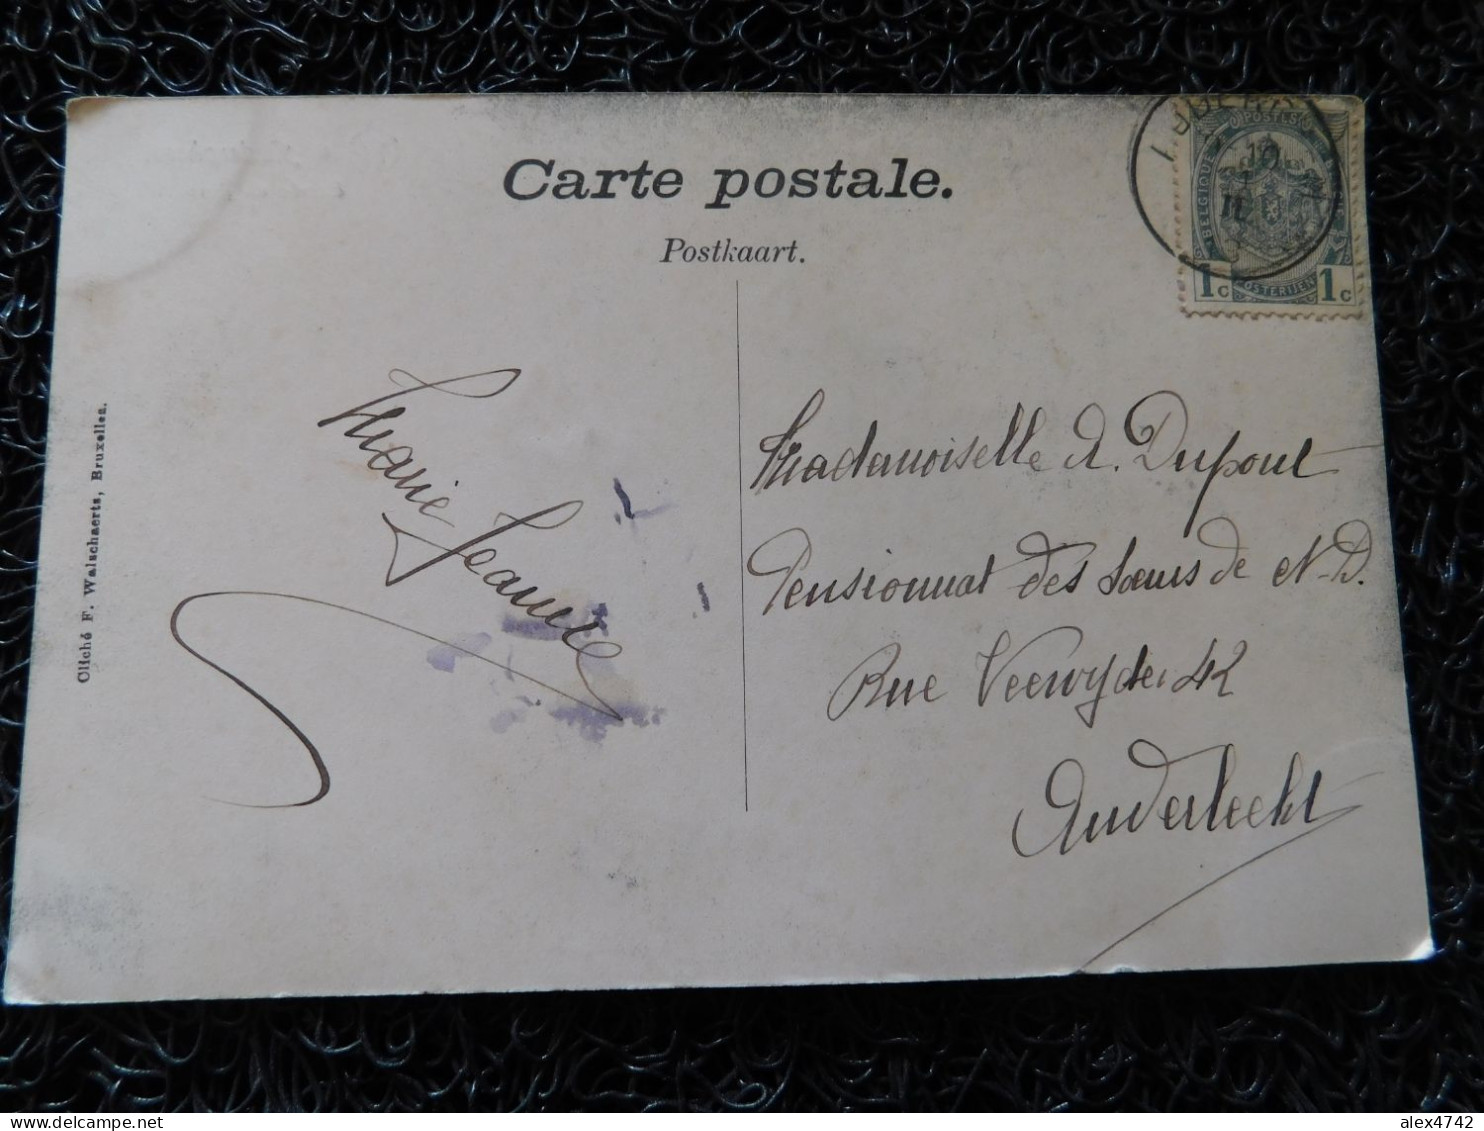 Carte postale.
Postkaart.
BELGIQUE
POSTES
POSTERIJEN
1c 1c
10
Cliché F. Walschaerts, Bruxelles.
Marie Jeanne
Mademoiselle A. Dupont
Pensionnat des Soeurs de N.D.
Rue Veeweyde 42
Anderlecht
alex4742